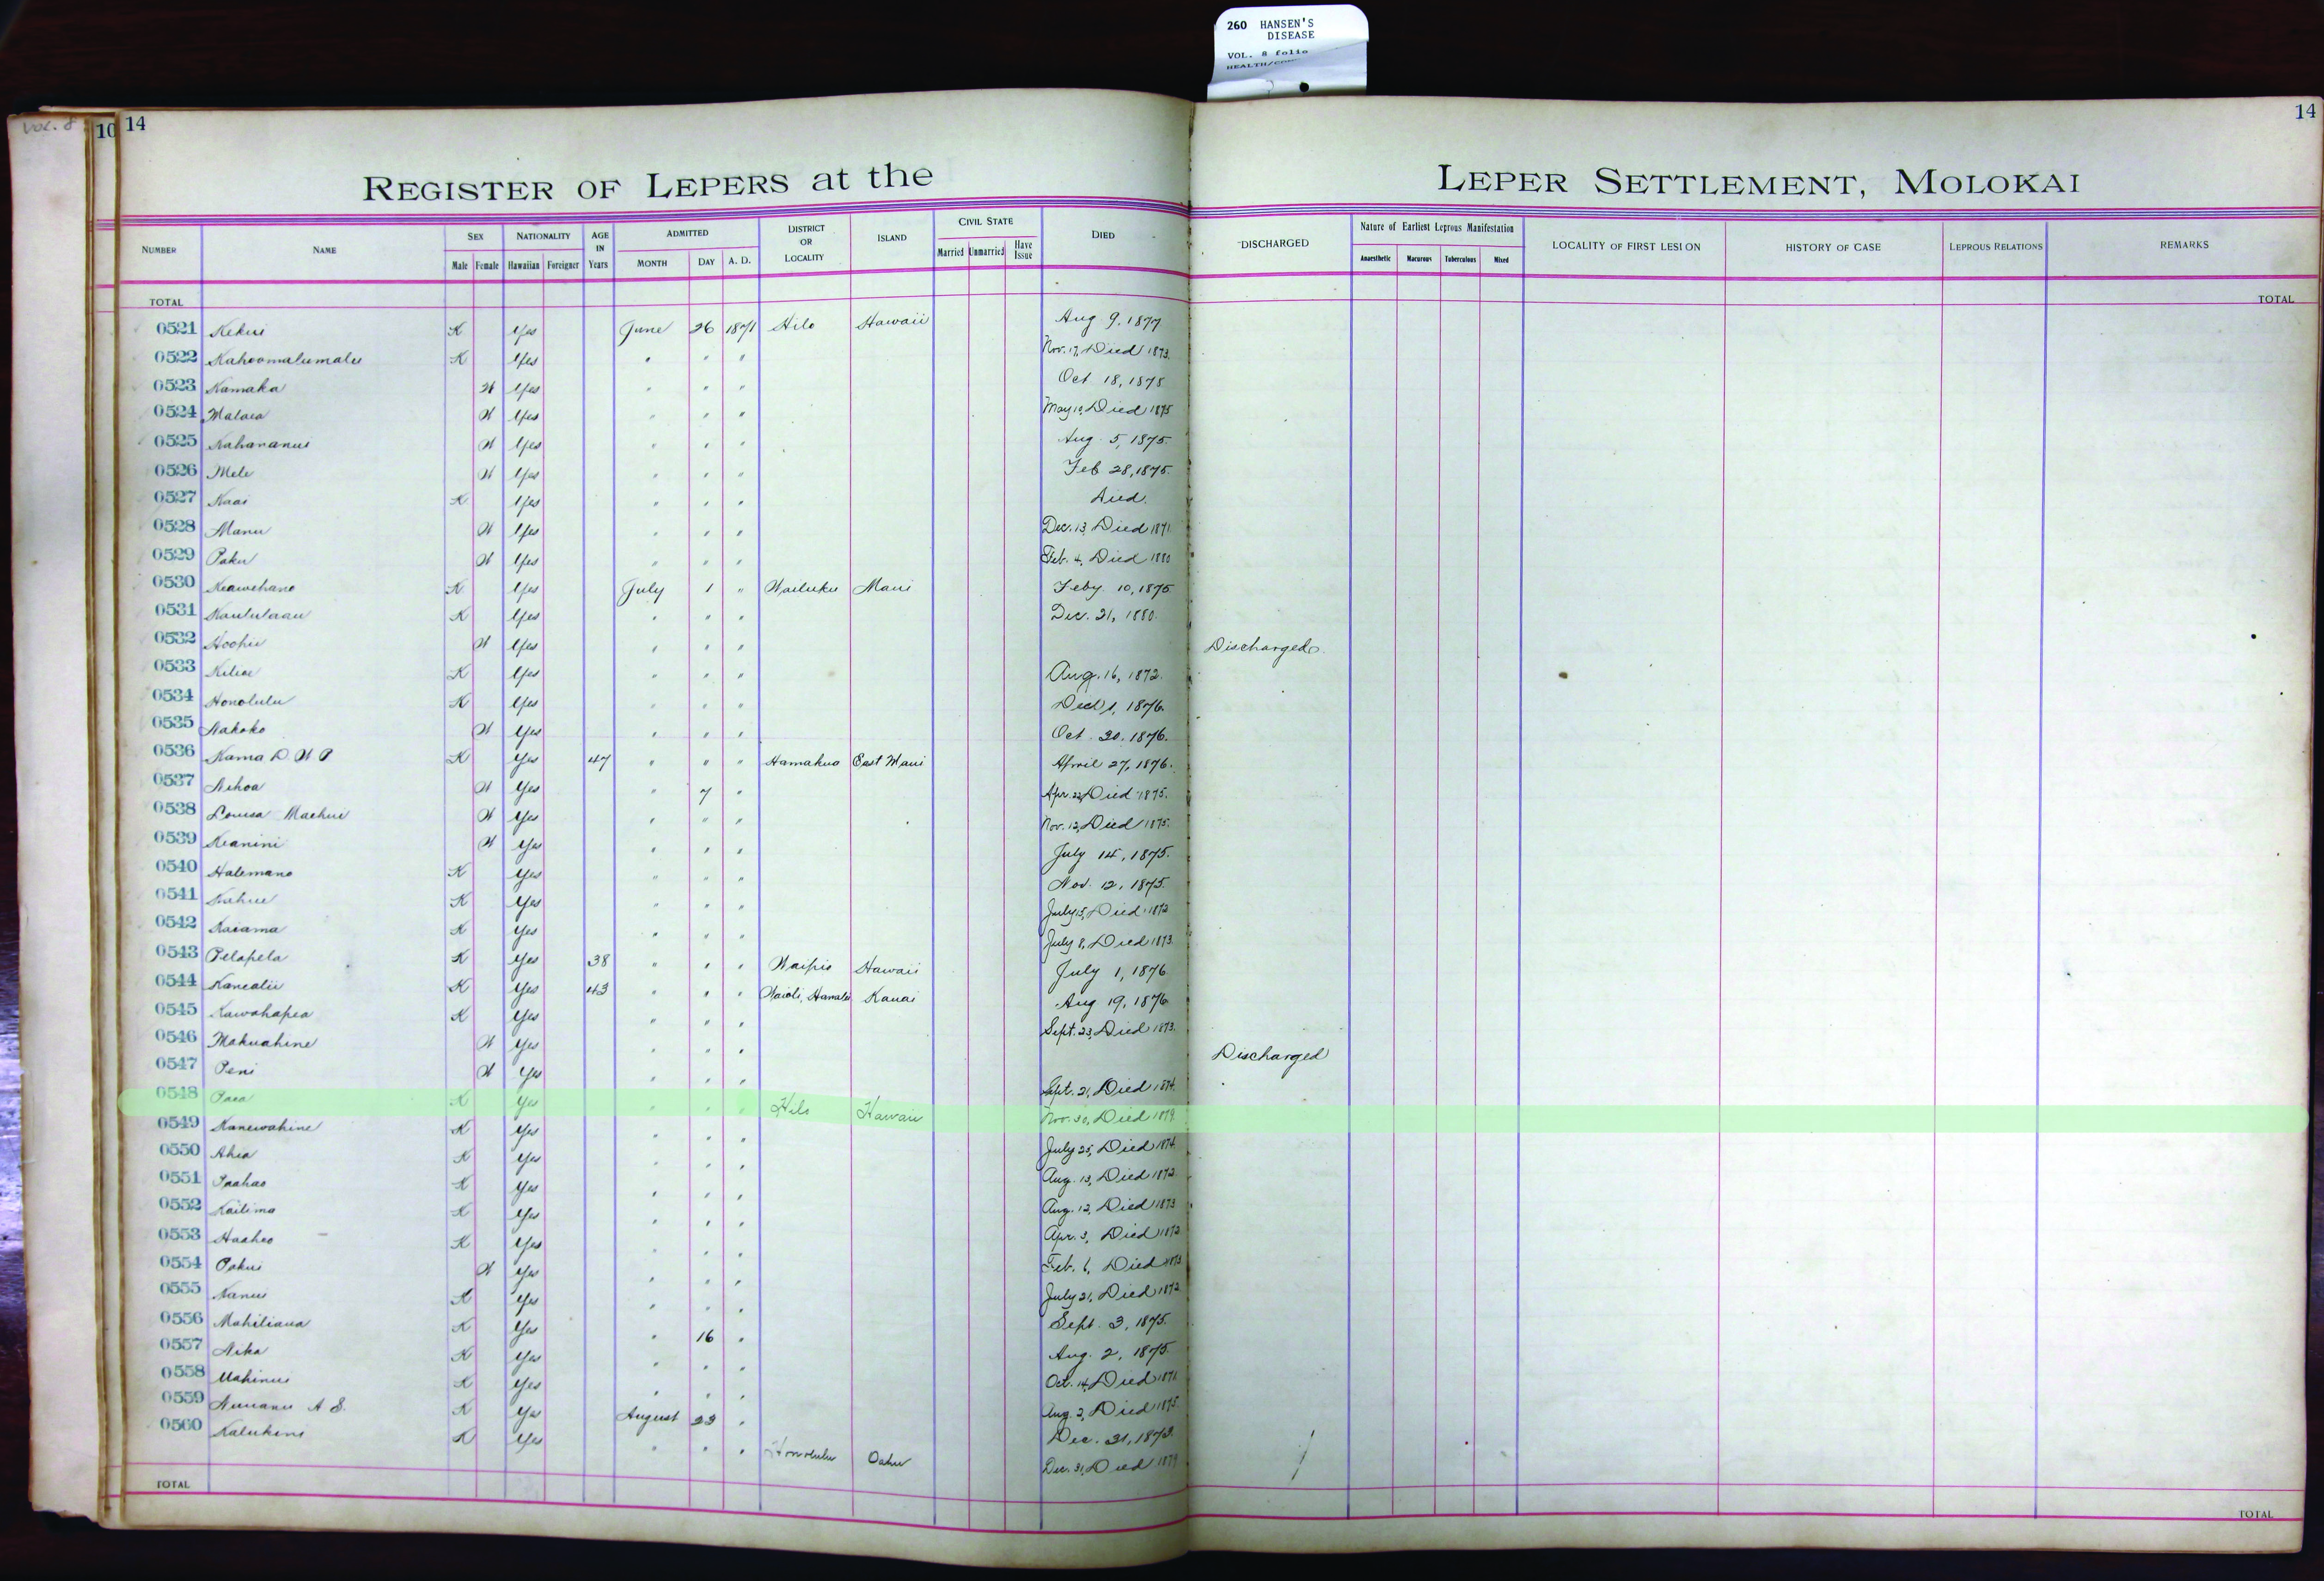 260 HANSEN'S
DISEASE
VOL. 8 folio
VOL. 8
10 14
14
REGISTER OF LEPERS at the LEPER SETTLEMENT, MOLOKAI
NUMBER NAME SEX Male Female NATIONALITY Hawaiian Foreigner AGE IN Years ADMITTED MONTH DAY A. D. DISTRICT OR LOCALITY ISLAND CIVIL STATE Married Unmarried Have Issue DIED DISCHARGED Nature of Earliest Leprous Manifestation Anaesthetic Macurous Tuberculous Mixed LOCALITY OF FIRST LESION HISTORY OF CASE LEPROUS RELATIONS REMARKS
TOTAL TOTAL
0521 Kekui K Yes June 26 1871 Hilo Hawaii Aug 9, 1877
0522 Kahoomalumalu K Yes " " " Nov. 17, Died 1873.
0523 Kamaka W Yes " " " Oct 18, 1875
0524 Malaea W Yes " " " May 10, Died 1875
0525 Nahananui W Yes " " " Aug. 5, 1875.
0526 Mele W Yes " " " Feb 28, 1875.
0527 Kaai K Yes " " " Died.
0528 Manu W Yes " " " Dec. 13, Died 1871
0529 Paku W Yes " " " Feb. 4, Died 1880
0530 Keawehano K Yes July 1 " Wailuku Maui Feby 10, 1875
0531 Kaululaau K Yes " " " Dec. 21, 1880.
0532 Hoohii W Yes " " " Discharged.
0533 Kiliae K Yes " " " Aug. 16, 1872.
0534 Honolulu K Yes " " " 1, 1876.
0535 Nakoko W Yes " " " Oct 20, 1876.
0536 Kama D. W P K Yes 47 " " " Hamakua East Maui April 27, 1876.
0537 Nihoa W Yes " 7 " Apr. 22, Died 1875.
0538 Louisa Maehui W Yes " " " Nov. 12, Died 1875.
0539 Keanini W Yes " " " July 14, 1875.
0540 Halemano K Yes " " " Nov. 12, 1875.
0541 Kahue K Yes " " " July 15, Died 1872
0542 Kaiama K Yes " " " July 8, Died 1873.
0543 Pelapela K Yes 38 " " " Waipio Hawaii July 1, 1876
0544 Kanealii K Yes 43 " " " Waioli, Hanalei Kauai Aug 19, 1876
0545 Kawahapea K Yes " " " Sept. 23, Died 1873.
0546 Makuahine W Yes " " " Discharged
0547 Peni W Yes " " " Sept. 21, Died 1874.
0548 Paea K Yes " " " Hilo Hawaii Nov. 30, Died 1879.
0549 Kanewahine K Yes " " " July 25, Died 1874.
0550 Ahia K Yes " " " Aug. 13, Died 1872.
0551 Paahao K Yes " " " Aug. 12, Died 1873
0552 Kailima K Yes " " " Apr. 3, Died 1872
0553 Haaheo K Yes " " " Feb. 6, Died 1873
0554 Pakui W Yes " " " July 21, Died 1872
0555 Nanui K Yes " " " Sept. 3, 1875.
0556 Mahiliana K Yes " 16 " Aug. 2, 1875.
0557 Nika K Yes " " " Oct. 14, Died 1871.
0558 Mahinui K Yes " " " Aug. 2, Died 1875.
0559 Nuuanu A S. K Yes August 23 " Dec. 31, 1873.
0560 Kalukini K Yes " " " Honolulu Oahu Dec. 31, Died 1879
TOTAL TOTAL